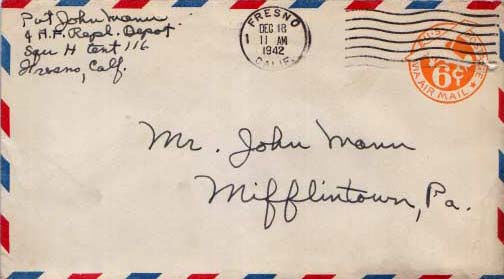 Pvt John Mann
4 A.F. Repl. Depot
Squ H Tent 116
Fresno, Calf.
FRESNO
DEC 18
11 AM
1942
CALIF.
U.S. POSTAGE
6¢
VIA AIR MAIL
Mr. John Mann
Mifflintown, Pa.